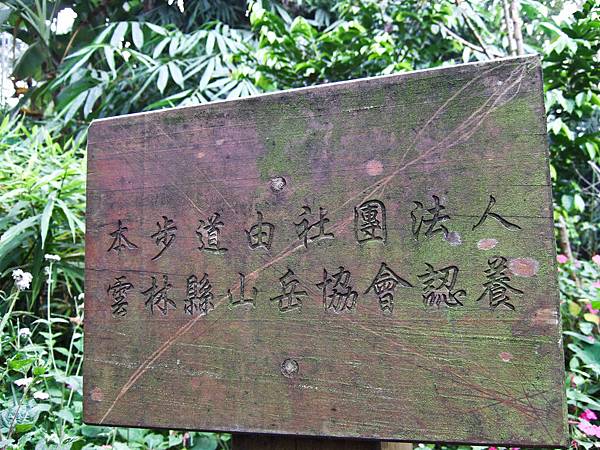 本步道由社團法人
雲林縣山岳協會認養